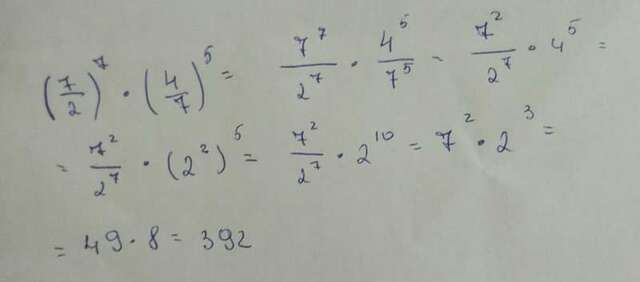 (7/2)^7 · (4/7)^5 = 7^7/2^7 · 4^5/7^5 = 7^2/2^7 · 4^5 =
= 7^2/2^7 · (2^2)^5 = 7^2/2^7 · 2^10 = 7^2 · 2^3 =
= 49 · 8 = 392